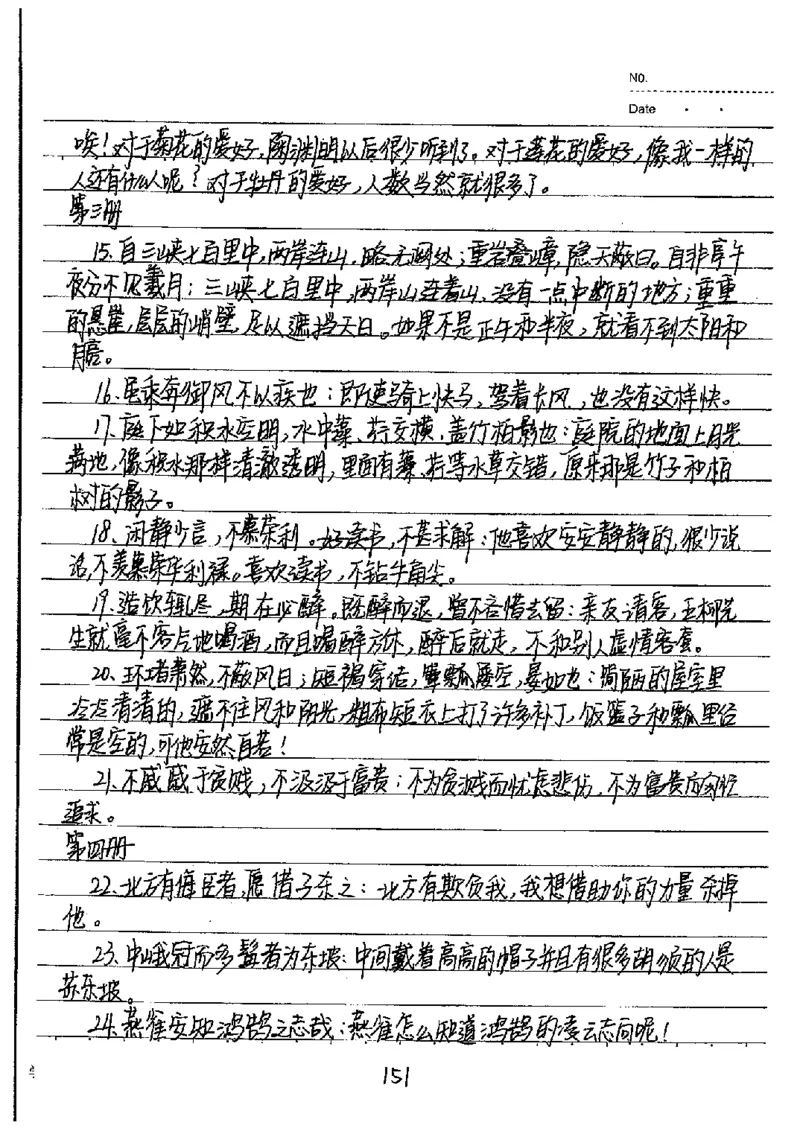 No.
Date
唉！对于菊花的爱好，陶渊明以后很少听到了。对于莲花的爱好，像我一样的
人还有什么人呢？对于牡丹的爱好，人数当然就很多了。
第三册
15、自三峡七百里中，两岸连山，略无阙处；重岩叠嶂，隐天蔽日。自非亭午
夜分不见曦月：三峡七百里中，两岸山连着山，没有一点中断的地方；重重
的悬崖，层层的峭壁，足以遮挡天日。如果不是正午和半夜，就看不到太阳和
月亮。
16、虽乘奔御风不以疾也：即使骑上快马，驾着长风，也没有这样快。
17、庭下如积水空明，水中藻、荇交横，盖竹柏影也：庭院的地面上月光
满地，像积水那样清澈透明，里面有藻、荇等水草交错，原来那是竹子和柏
树的影子。
18、闲静少言，不慕荣利。好读书，不甚求解：他喜欢安安静静的，很少说
话，不羡慕荣华利禄。喜欢读书，不钻牛角尖。
19、造饮辄尽，期在必醉。既醉而退，曾不吝惜去留：亲友请客，五柳先
生就毫不客气地喝酒，而且喝醉方休，醉后就走，不和别人虚情客套。
20、环堵萧然，不蔽风日；短褐穿结，箪瓢屡空，晏如也：简陋的屋室里
冷冷清清的，遮不住风和阳光，粗布短衣上打了许多补丁，饭篮子和瓢里经
常是空的，可他安然自若！
21、不戚戚于贫贱，不汲汲于富贵：不为贫贱而忧虑悲伤，不为富贵而匆忙
追求。
第四册
22、北方有侮臣者，愿借子杀之：北方有欺负我，我想借助你的力量杀掉
他。
23、中峨冠而多髯者为东坡：中间戴着高高的帽子并且有很多胡须的人是
苏东坡。
24、燕雀安知鸿鹄之志哉：燕雀怎么知道鸿鹄的凌云志向呢！
151